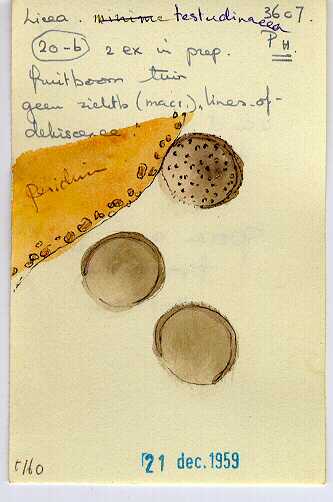 Licea. minime testudinacea 3607.
20-b 2 ex in prep. PH.
fruitboom tuin
geen zichtb (macr.), lines-of-
dehiscence.
peridium
21 dec. 1959